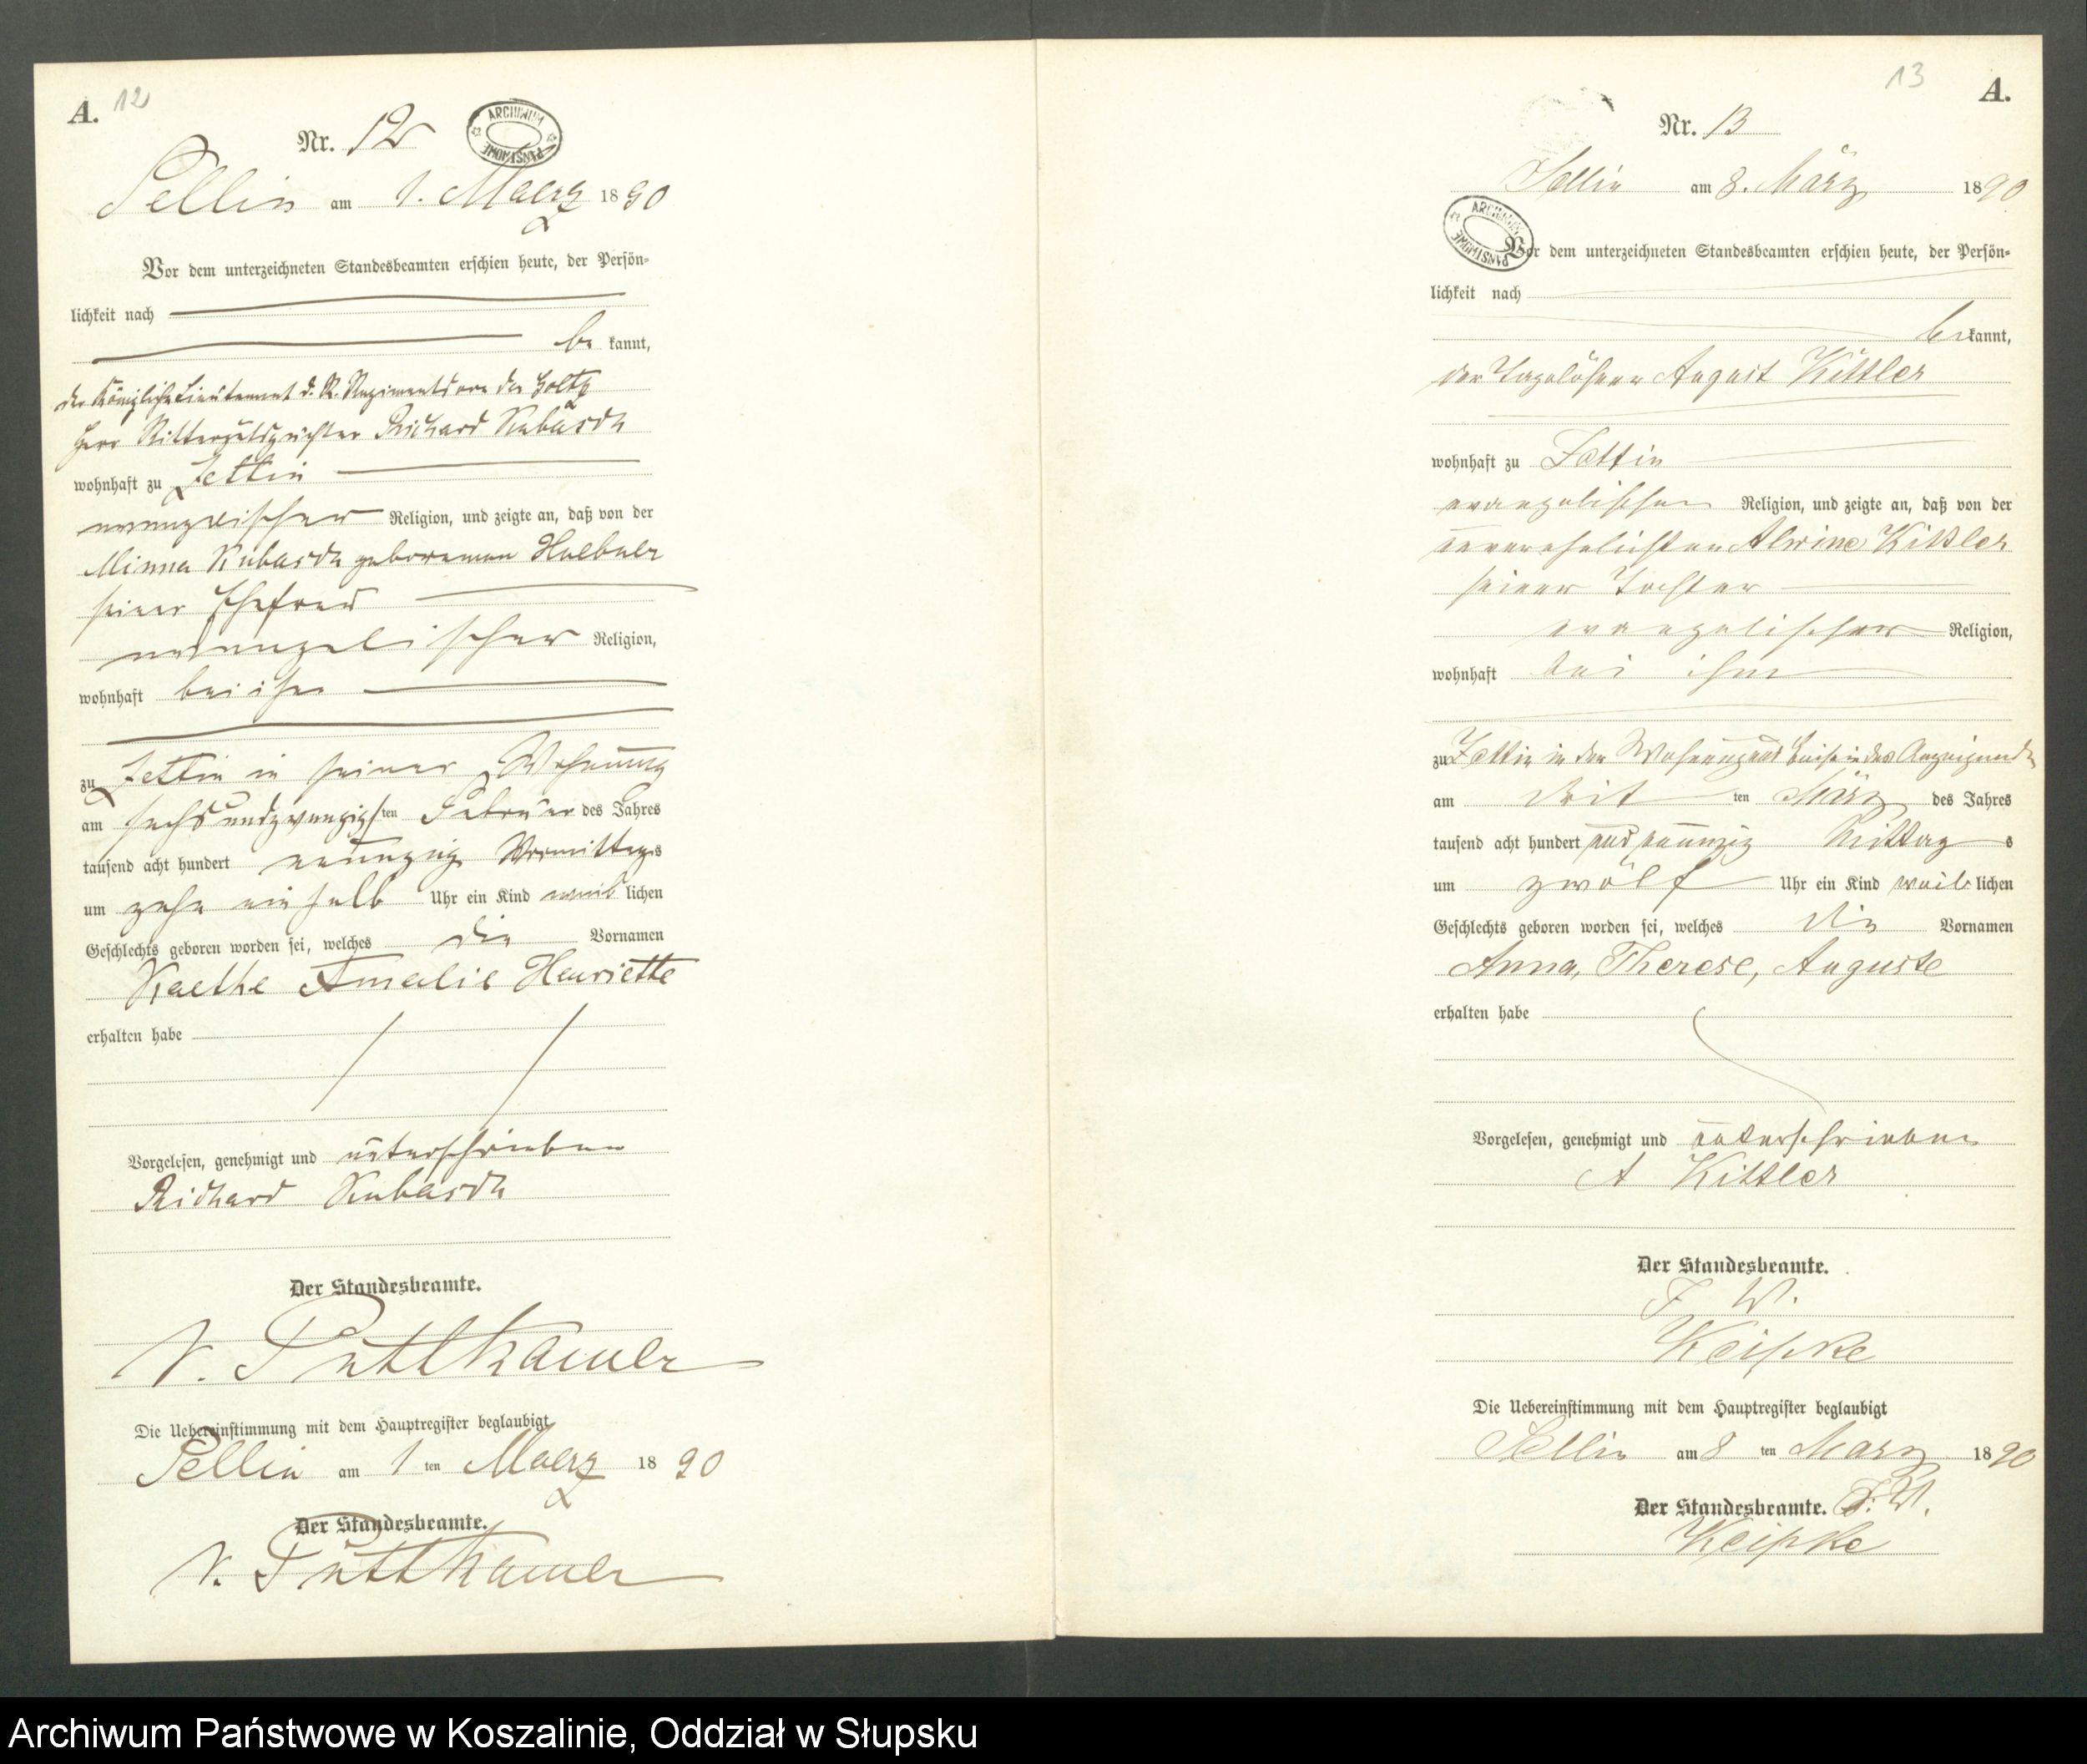 A. 12
Nr. 12
ARCHIWUM PAŃSTWOWE
Sellin am 1. Maerz 1890
Vor dem unterzeichneten Standesbeamten erschien heute, der Persön-
lichkeit nach
be kannt,
der Königliche Lieutenant d. R. Regiments von der Goltz
Herr Rittergutspächter Richard Kubasch
wohnhaft zu Zettin
evangelischer Religion, und zeigte an, daß von der
Minna Kubasch geborenen Huebner
seiner Ehefrau
evangelischer Religion,
wohnhaft bei ihm
zu Zettin in seiner Wohnung
am sechsundzwanzigsten Februar des Jahres
tausend acht hundert neunzig Vormittags
um zehn ein halb Uhr ein Kind weiblichen
Geschlechts geboren worden sei, welches die Vornamen
Kaethe Amalie Henriette
erhalten habe
Vorgelesen, genehmigt und unterschrieben
Richard Kubasch
Der Standesbeamte.
v. Puttkamer
Die Uebereinstimmung mit dem Hauptregister beglaubigt
Sellin am 1 ten Maerz 1890
Der Standesbeamte.
v. Puttkamer
13 A.
Nr. 13
Sellin am 8. März 1890
ARCHIWUM PAŃSTWOWE
Vor dem unterzeichneten Standesbeamten erschien heute, der Persön-
lichkeit nach
be kannt,
der Tagelöhner August Kittler
wohnhaft zu Zettin
evangelischer Religion, und zeigte an, daß von der
unverehelichten Alwine Kittler
seiner Tochter
evangelischer Religion,
wohnhaft bei ihm
zu Zettin in der Wohnung und Beisein des Anzeigenden
am dritten März des Jahres
tausend acht hundert und neunzig Mittags
um zwölf Uhr ein Kind weiblichen
Geschlechts geboren worden sei, welches die Vornamen
Anna, Therese, Auguste
erhalten habe
Vorgelesen, genehmigt und unterschrieben
A Kittler
Der Standesbeamte.
I. V.
Keipke
Die Uebereinstimmung mit dem Hauptregister beglaubigt
Sellin am 8 ten März 1890
Der Standesbeamte. I. V.
Keipke
Archiwum Państwowe w Koszalinie, Oddział w Słupsku